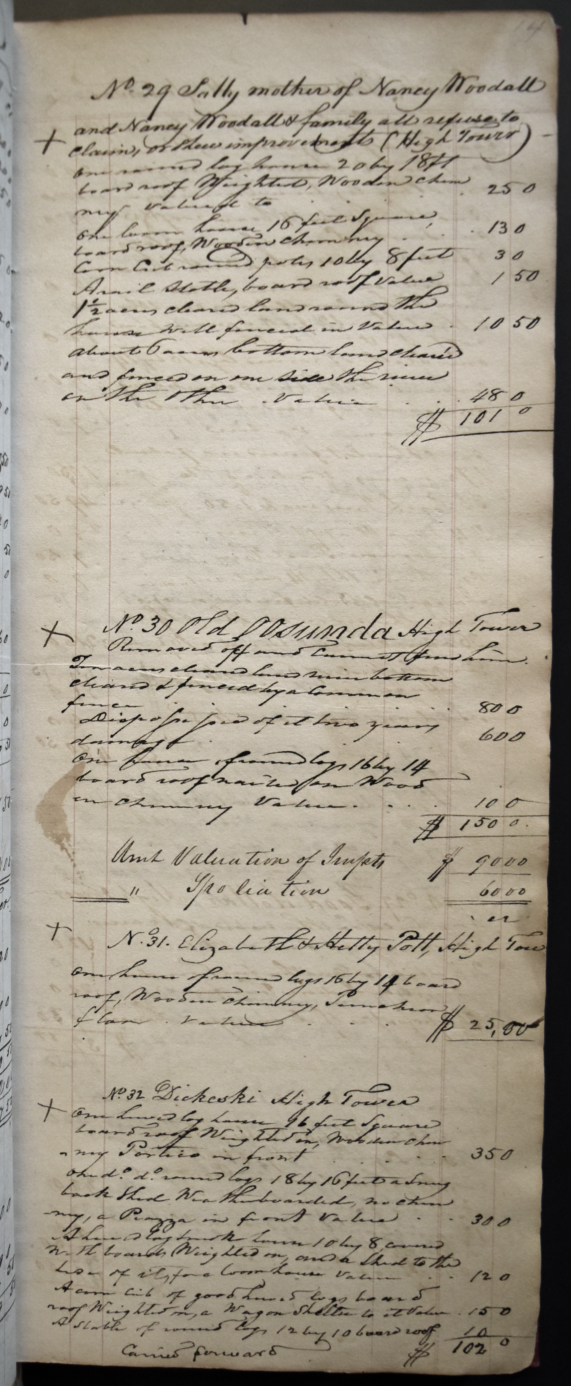 No. 29 Sally mother of Nancy Woodall
and Nancy Woodall & family all refuse to
claim, or their improvements (High Tower)
One round log house 20 by 18 ft
board roof Weighted, Wooden Chim
ney valued to 25 0
One loom house 16 feet Square,
board roof, Wooden Chimney 13 0
Corn Crib round poles 10 by 8 feet 3 0
A rail Stable, board roof Value 1 50
1½ acres cleard land round the
house well fenced in Value 10 50
About 6 acres bottom land cleard
and fenced on one side the river
on the other Value 48 0
$ 101 0
No. 30 Old Gosunda High Tower
Removed off and Cannot find him
Ten acres cleard land river bottom
cleard & fenced by a Common
fence 80 0
Dispossessed of it two years
damage 60 0
One house of round logs 16 by 14
board roof nailed on Wood
en Chimney Value 10 0
$ 150 0
Amt Valuation of Impts $ 90 00
" Spoliation 60 00
No. 31. Elizabeth & Hetty Pott, High Tow
One house of round logs 16 by 14 board
roof, Wooden Chimney, Puncheon
floor Value $ 25,00
No. 32 Dickeski High Tower
One hewed log house 16 feet Square
board roof Weighted on, Wooden Chim
ney Portico in front 35 0
One do. do. round logs 18 by 16 feet a Snug
back Shed Weatherboarded, no chim
ney, a Piazza in front Value 30 0
A hewed log house 10 by 8, covered
with boards Weighted on, and a Shed to the
side of it, for a loom house Value 12 0
A corn Crib of good hewed logs board
roof Weighted on, a Wagon Shelter to it Value 15 0
A Stable of round logs 12 by 10 board roof 10
Carried forward $ 102 0